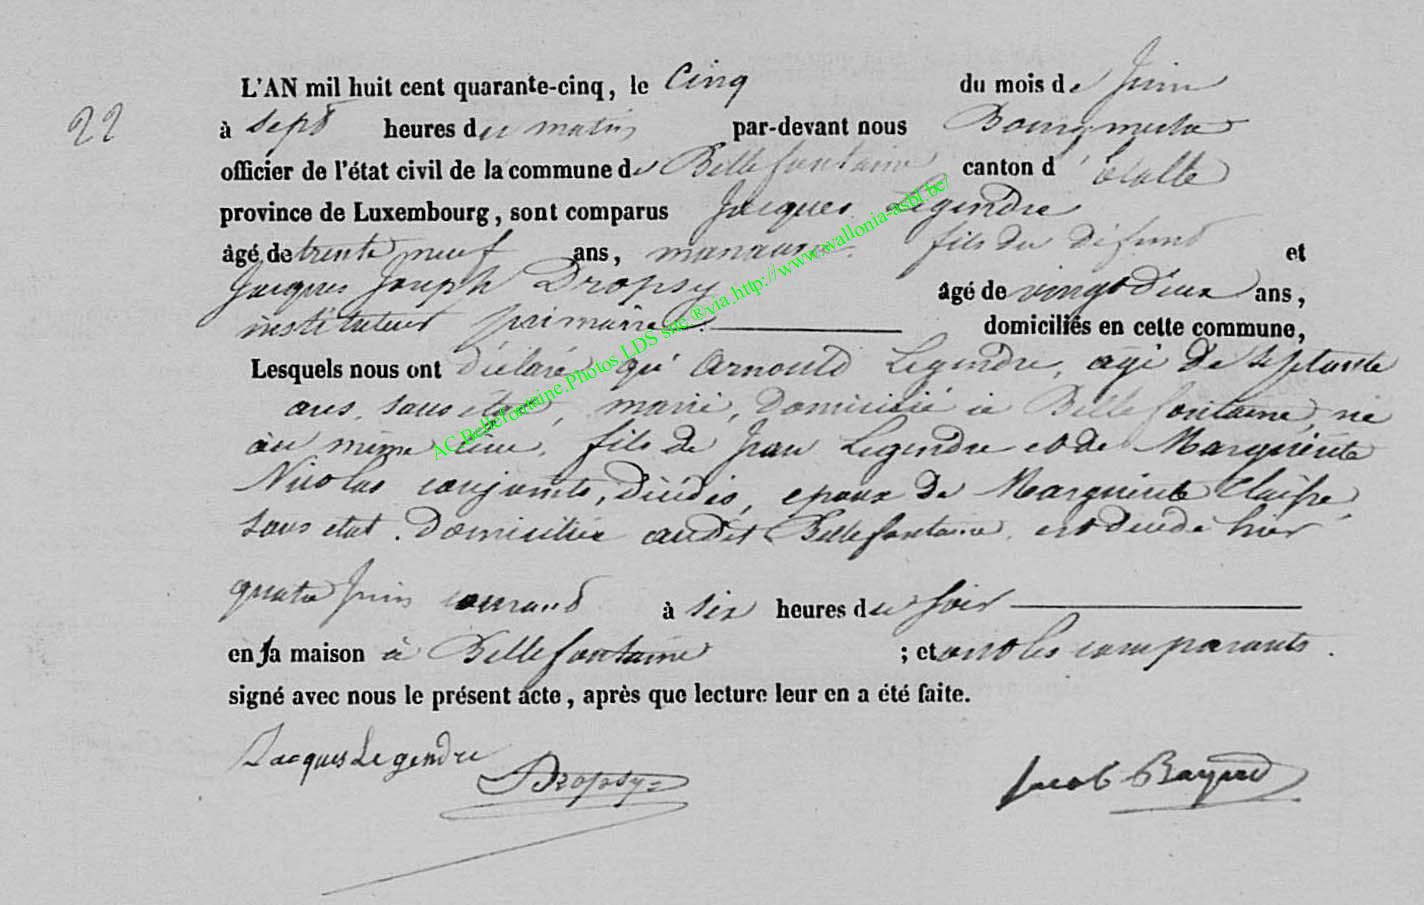 22
L'AN mil huit cent quarante-cinq, le Cinq du mois de Juin
à sept heures du matin par-devant nous Bourgmestre
officier de l'état civil de la commune de Bellefontaine canton d'Etalle
province de Luxembourg, sont comparus Jacques Legendre
âgé de trente neuf ans, manœuvre fils du défunt et
Jacques Joseph Dropsy âgé de vingt deux ans,
instituteur primaire domiciliés en cette commune,
Lesquels nous ont déclaré qu' Arnould Legendre, agé de septante
ans, sans état, marié, domicilié à Bellefontaine, né
au même lieu, fils de Jean Legendre et de Marguerite
Nicolas conjoints, décédés, epoux de Marguerite
sans etat. domiciliée audit Bellefontaine, est décédé hier
quatre Juin courant à six heures du soir
en sa maison à Bellefontaine ; et ont les comparants.
signé avec nous le présent acte, après que lecture leur en a été faite.
Jacques Legendre
Dropsy
Jacob Bayard
AC.Bellefontaine.Photos LDS site ®via.http://www.wallonia-asbl.be/